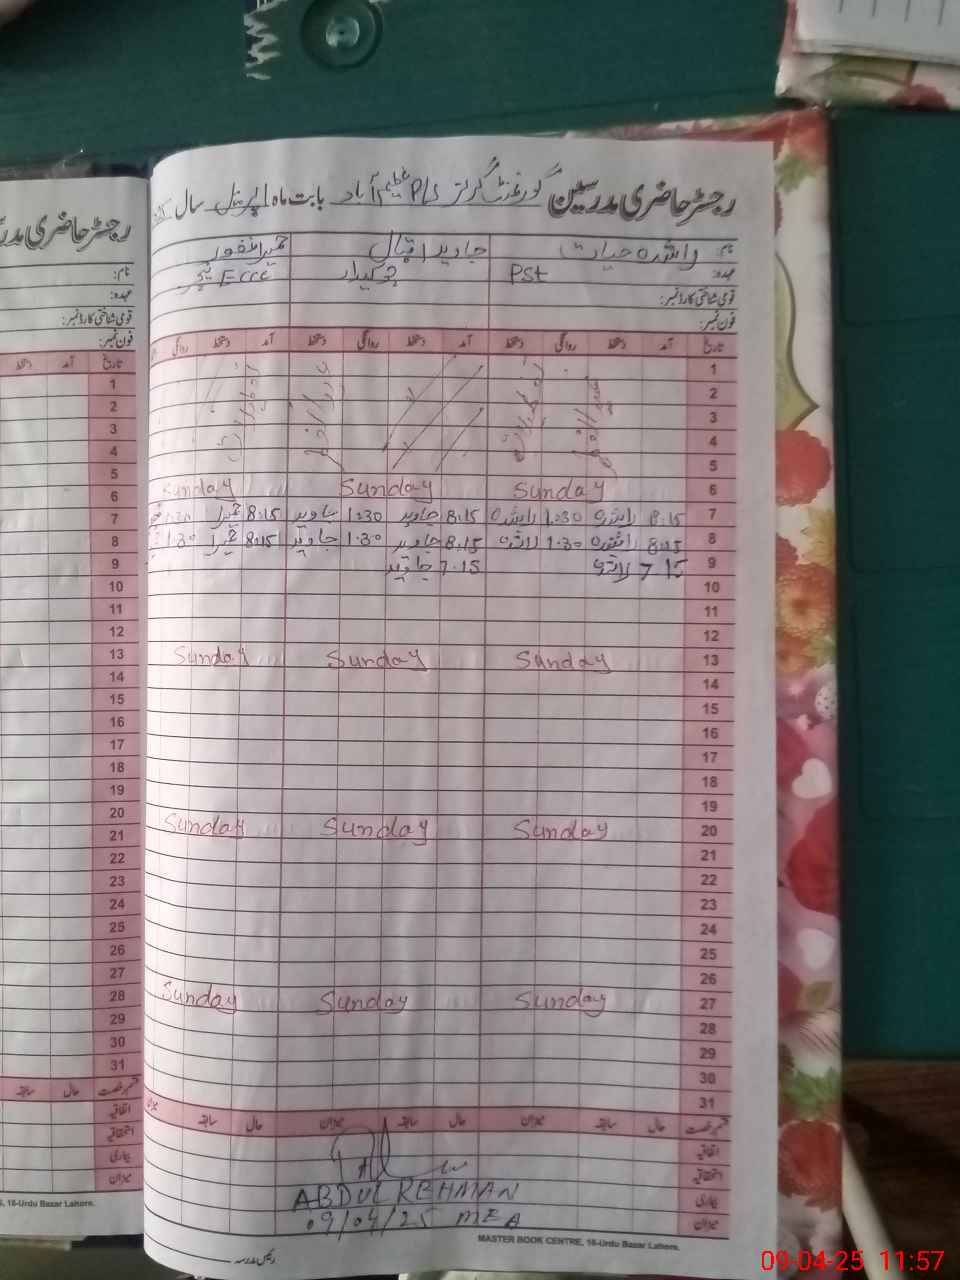 رجسٹر حاضری مدرسین گورنمنٹ گرلز P/S عظیم آباد بابت ماہ اپریل سال
نام: راشدہ حیات جاوید اقبال حمیرا غفور
عہدہ: PST چوکیدار Ecce ٹیچر
قومی شناختی کارڈ نمبر:
فون نمبر:
تاریخ آمد دستخط روانگی دستخط آمد دستخط روانگی دستخط آمد دستخط روانگی
1
2
3
4
5
6 Sunday Sunday Sunday
7 8:15 راشدہ 1:30 راشدہ 8:15 جاوید 1:30 جاوید 8:15 حمیرا 1:30
8 8:15 راشدہ 1:30 راشدہ 8:15 جاوید 1:30 جاوید 8:15 حمیرا 1:30
9 7:15 راشدہ 7:15 جاوید
10
11
12
13 Sunday Sunday Sunday
14
15
16
17
18
19
20 Sunday Sunday Sunday
21
22
23
24
25
26
27 Sunday Sunday Sunday
28
29
30
31
قسم رخصت حال سابقہ میزان حال سابقہ میزان حال سابقہ میزان
اتفاقیہ
استحقاقیہ
بیماری
میزان
ABDUL REHMAN
09/04/25 MEA
MASTER BOOK CENTRE, 16-Urdu Bazar Lahore.
رئیس مدرسہ
رجسٹر حاضری مدر
نام:
عہدہ:
قومی شناختی کارڈ نمبر:
فون نمبر:
تاریخ آمد دستخط
1
2
3
4
5
6
7
8
9
10
11
12
13
14
15
16
17
18
19
20
21
22
23
24
25
26
27
28
29
30
31
قسم رخصت حال سابقہ
اتفاقیہ
استحقاقیہ
بیماری
میزان
16-Urdu Bazar Lahore.
09-04-25 11:57